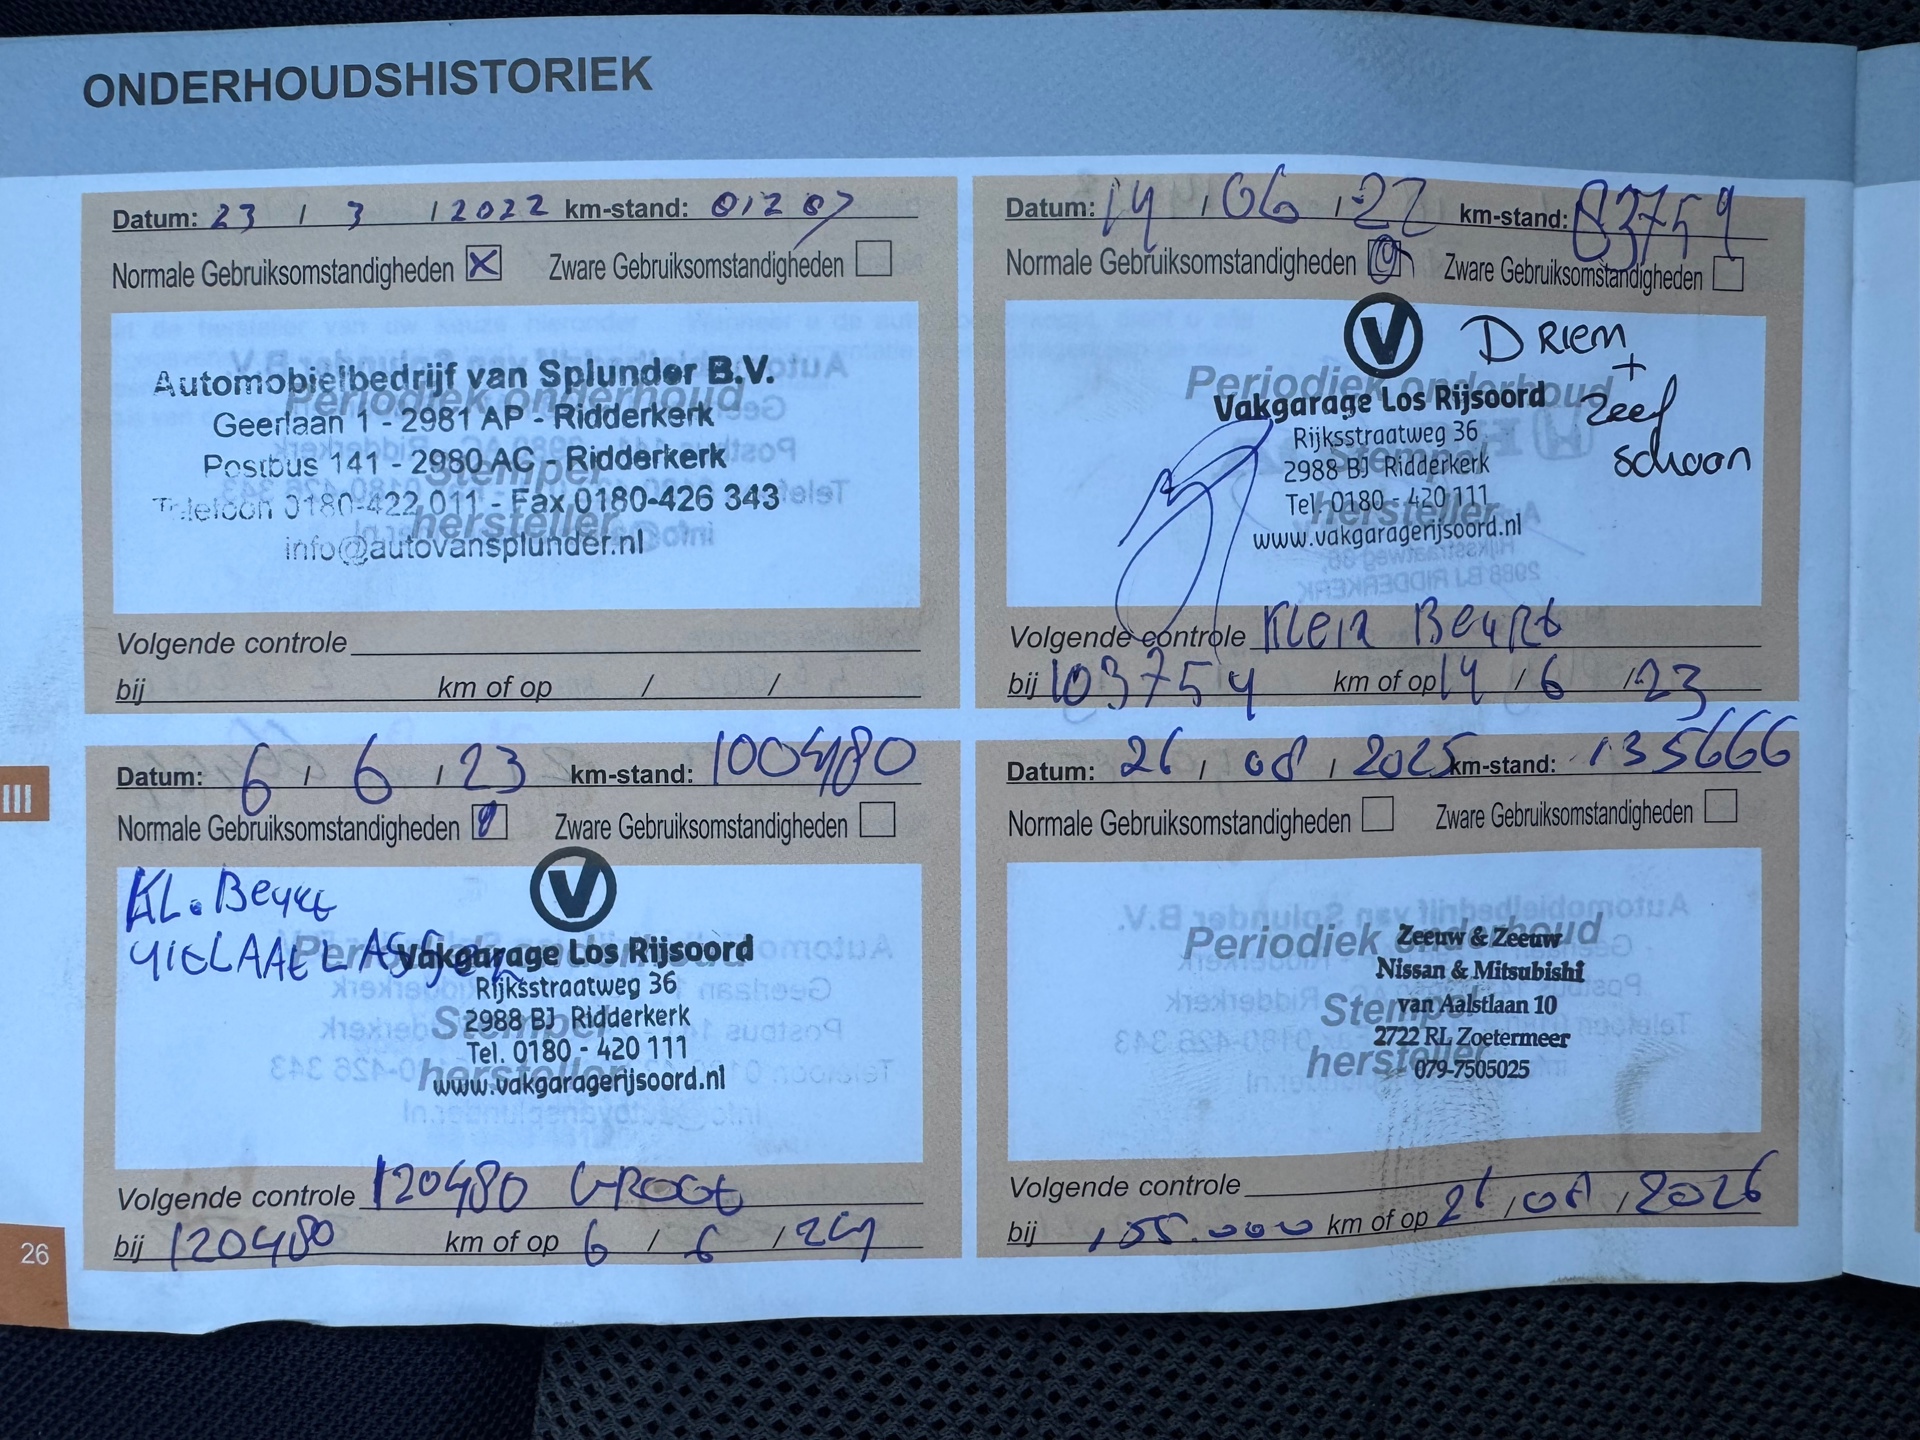 ONDERHOUDSHISTORIEK
Datum: 23 / 3 / 2022 km-stand: 81207
Normale Gebruiksomstandigheden X Zware Gebruiksomstandigheden
Periodiek onderhoud
Stempel
hersteller
Automobielbedrijf van Splunder B.V.
Geerlaan 1 - 2981 AP - Ridderkerk
Postbus 141 - 2980 AC - Ridderkerk
Telefoon 0180-422 011 - Fax 0180-426 343
info@autovansplunder.nl
Volgende controle
bij km of op / /
Datum: 14 / 06 / 22 km-stand: 83754
Normale Gebruiksomstandigheden Zware Gebruiksomstandigheden
V
D RIEM
+
Zeef
schoon
Periodiek onderhoud
Stempel
hersteller
Vakgarage Los Rijsoord
Rijksstraatweg 36
2988 BJ Ridderkerk
Tel. 0180 - 420 111
www.vakgaragerijsoord.nl
Volgende controle Klein Beurt
bij 103754 km of op 14 / 6 / 23
III
Datum: 6 / 6 / 23 km-stand: 100480
Normale Gebruiksomstandigheden Zware Gebruiksomstandigheden
KL. Beurt
V
Periodiek onderhoud
Stempel
hersteller
Vakgarage Los Rijsoord
Rijksstraatweg 36
2988 BJ Ridderkerk
Tel. 0180 - 420 111
www.vakgaragerijsoord.nl
Volgende controle 120480 Groot
bij 120480 km of op 6 / 6 / 24
Datum: 26 / 08 / 2025 km-stand: 135666
Normale Gebruiksomstandigheden Zware Gebruiksomstandigheden
Periodiek onderhoud
Stempel
hersteller
Zeeuw & Zeeuw
Nissan & Mitsubishi
van Aalstlaan 10
2722 RL Zoetermeer
079-7505025
Volgende controle
bij 155.000 km of op 26 / 08 / 2026
26